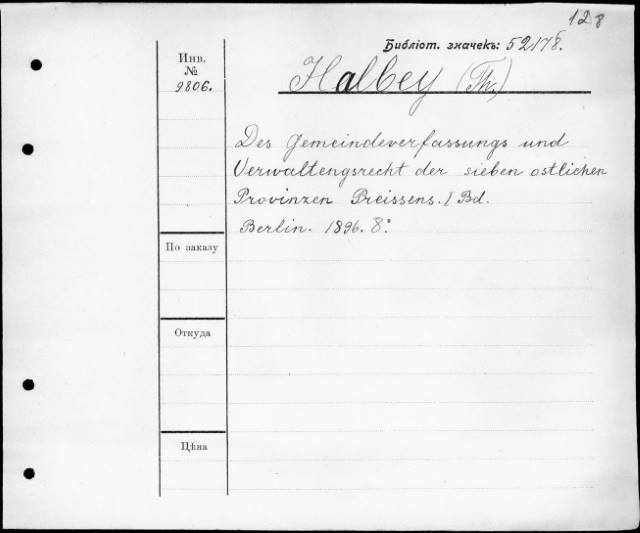 128
Библіот. значекъ: 52178.
Инв.
№
9806.
Halbey (Th.)
Des Gemeindeverfassungs und
Verwaltengsrecht der sieben ostlichen
Provinzen Preissens. I Bd.
Berlin. 1896. 8°.
По заказу
Откуда
Цѣна